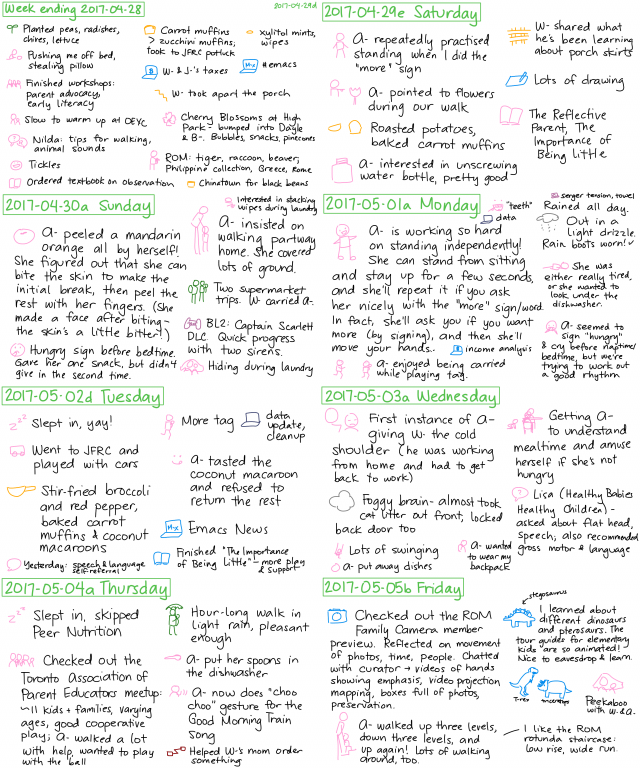 Week ending 2017-04-28
2017-04-29d
Planted peas, radishes,
chives, lettuce
Pushing me off bed,
stealing pillow
Finished workshops:
parent advocacy,
early literacy
Slow to warm up at OEYC
Nilda: tips for walking,
animal sounds
Tickles
Ordered textbook on observation
Carrot muffins
> zucchini muffins;
took to JFRC potluck
xylitol mints,
wipes
W- & J-'s taxes
#emacs
W- took apart the porch
Cherry Blossoms at High
Park - bumped into Dayle
& B-. Bubbles, snacks, pinecones
ROM: tiger, raccoon, beaver,
Philippine collection, Greece, Rome
Chinatown for black beans
2017-04-29e Saturday
A- repeatedly practised
standing when I did the
"more" sign
A- pointed to flowers
during our walk
Roasted potatoes,
baked carrot muffins
A- interested in unscrewing
water bottle, pretty good
W- shared what
he's been learning
about porch skirts
Lots of drawing
The Reflective
Parent, The
Importance of
Being Little
2017-04-30a Sunday
A- peeled a mandarin
orange all by herself!
She figured out that she can
bite the skin to make the
initial break, then peel the
rest with her fingers. (She
made a face after biting -
the skin's a little bitter!)
Hungry sign before bedtime.
Gave her one snack, but didn't
give in the second time.
Interested in stacking
wipes during laundry
A- insisted on
walking partway
home. She covered
lots of ground.
Two supermarket
trips. W- carried A-.
BL2: Captain Scarlett
DLC. Quick progress
with two sirens.
Hiding during laundry
2017-05-01a Monday
"teeth"
data
A- is working so hard
on standing independently!
She can stand from sitting
and stay up for a few seconds,
and she'll repeat it if you ask
her nicely with the "more" sign/word.
In fact, she'll ask you if you want
more (by signing), and then she'll
move your hands..
income analysis
A- enjoyed being carried
while playing tag.
serger tension, towel
Rained all day.
Out in a
light drizzle.
Rain boots worn!
She was
either really tired,
or she wanted to
look under the
dishwasher.
A- seemed to
sign "hungry"
& cry before naptime/
bedtime, but we're
trying to work out
a good rhythm
2017-05-02d Tuesday
Slept in, yay!
Went to JFRC and
played with cars
Stir-fried broccoli
and red pepper,
baked carrot
muffins & coconut
macaroons
Yesterday: speech & language
self-referral
More tag
data
update,
cleanup
A- tasted the
coconut macaroon
and refused to
return the rest
M-x
Emacs News
Finished "The Importance
of Being Little" - more play
& support
2017-05-03a Wednesday
First instance of A-
giving W- the cold
shoulder (he was working
from home and had to get
back to work)
Foggy brain - almost took
cat litter out front, locked
back door too
Lots of swinging
A- put away dishes
A- wanted
to wear my
backpack
Getting A-
to understand
mealtime and amuse
herself if she's not
hungry
Lisa (Healthy Babies
Healthy Children) -
asked about flat head,
speech; also recommended
gross motor & language
2017-05-04a Thursday
Slept in, skipped
Peer Nutrition
Checked out the
Toronto Association of
Parent Educators meetup:
~11 kids + families, varying
ages, good cooperative
play; A- walked a lot
with help, wanted to play
with the ball
Hour-long walk in
light rain, pleasant
enough
A- put her spoons in
the dishwasher
A- now does "choo
choo" gesture for the
Good Morning Train
Song
Helped W-'s mom order
something
2017-05-05b Friday
Checked out the ROM
Family Camera member
preview. Reflected on movement
of photos, time, people. Chatted
with curator → videos of hands
showing emphasis, video projection
mapping, boxes full of photos,
preservation.
A- walked up three levels,
down three levels, and
up again! Lots of walking
around, too.
stegosaurus
I learned about
different dinosaurs
and pterosaurs. The
tour guides for elementary
kids are so animated!
Nice to eavesdrop & learn.
T-rex
triceratops
Peekaboo
with W- & A-
I like the ROM
rotunda staircase:
low rise, wide run.